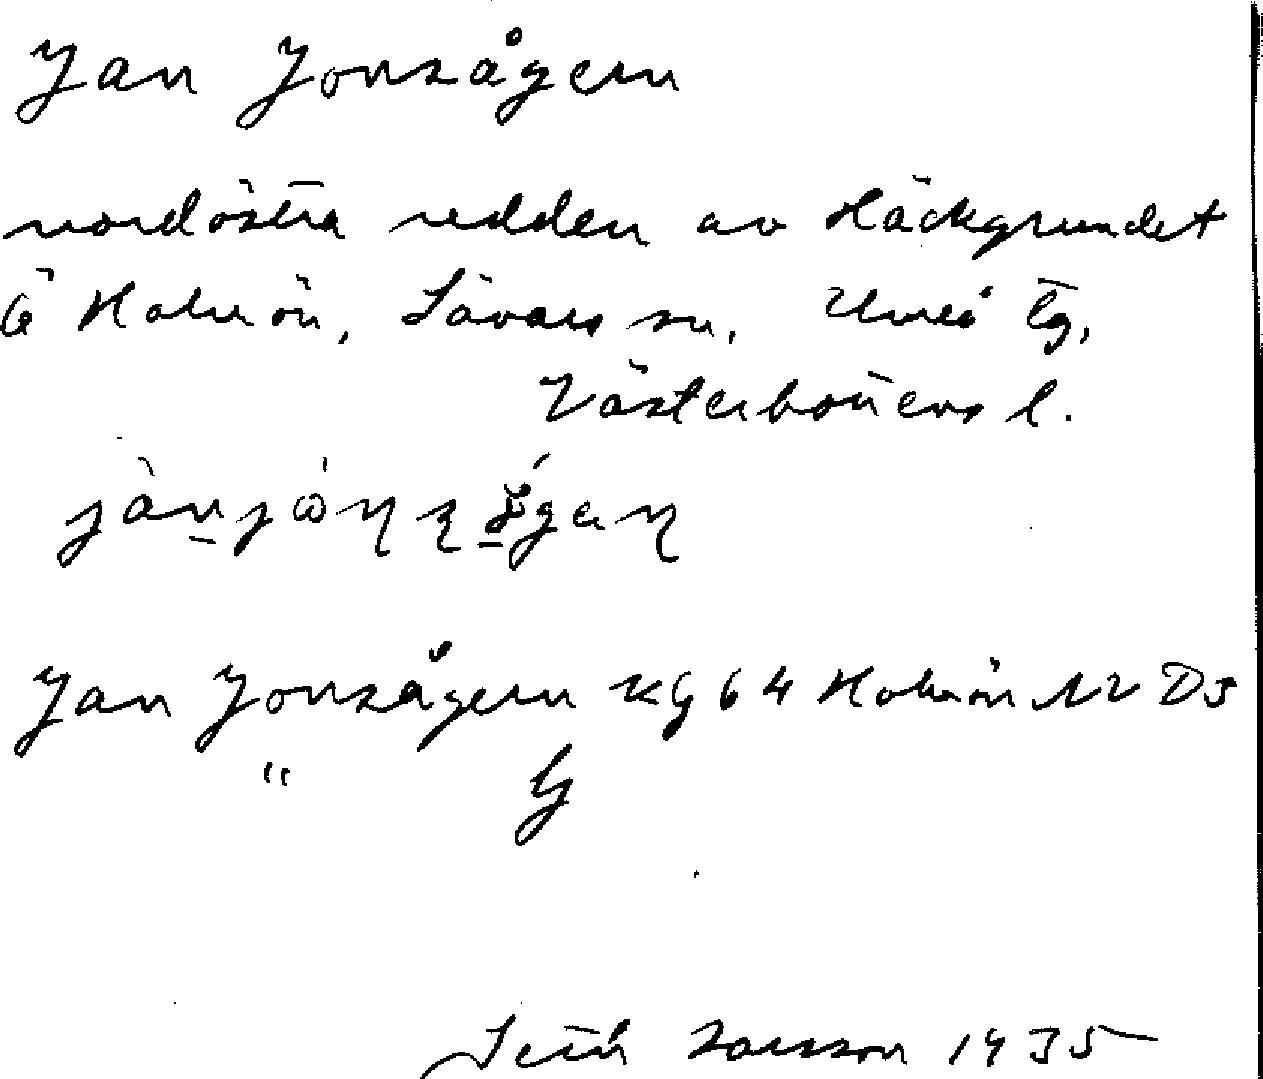 Jan Jonsågern
nordöstra udden av Häckgrundet
å Holmön, Sävars sn, Umeå tg,
Västerbottens l.
Jan Jonsågern KG 64 Holmön NV D5
"
Seth Larsson 1935